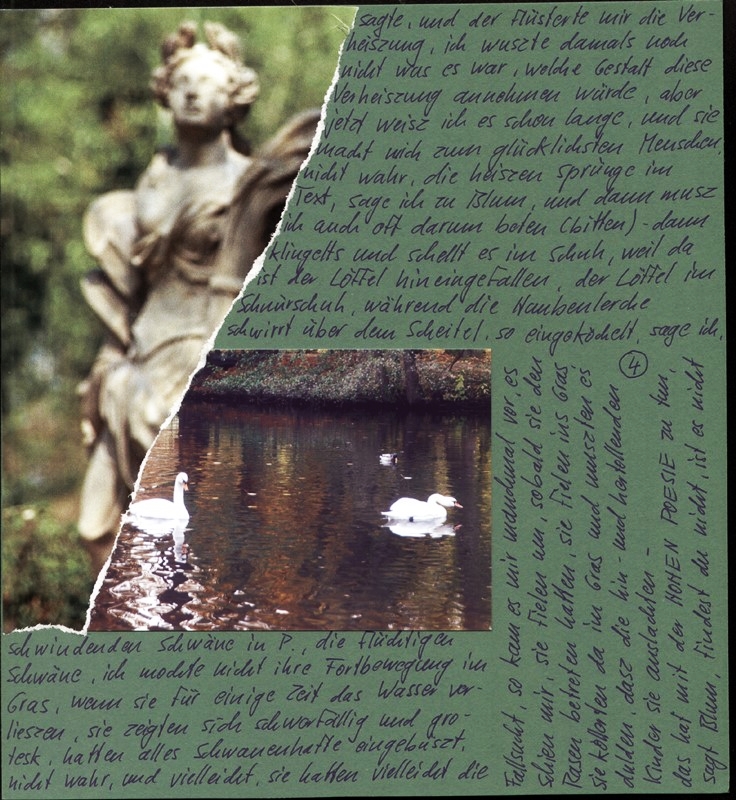 sagte, und der flüsterte mir die Ver-
heiszung, ich wuszte damals noch
nicht was es war, welche Gestalt diese
Verheiszung annehmen würde, aber
jetzt weisz ich es schon lange, und sie
macht mich zum glücklichsten Menschen,
nicht wahr, die heiszen Sprünge im
Text, sage ich zu Blum, und dann musz
ich auch oft darum beten (bitten) - dann
klingelts und schellt es im Schuh, weil da
ist der Löffel hineingefallen, der Löffel im
Schnürschuh, während die Haubenlerche
schwirrt über dem Scheitel, so eingeködelt, sage ich,
schwindenden Schwäne in P., die flüchtigen
Schwäne, ich mochte nicht ihre Fortbewegung im
Gras, wenn sie für einige Zeit das Wasser ver-
lieszen, sie zeigten sich schwerfällig und gro-
tesk, hatten alles Schwanenhafte eingebüszt,
nicht wahr, und vielleicht, sie hatten vielleicht die
Fallsucht, so kam es mir manchmal vor, es
schien mir, sie fielen um, sobald sie den
Rasen betreten hatten, sie fielen ins Gras
sie kollerten da im Gras und muszten es
dulden, dasz die hin- und hertollenden
Kinder sie auslachten -
das hat mit der HOHEN POESIE zu tun,
sagt Blum, findest du nicht, ist es nicht
4